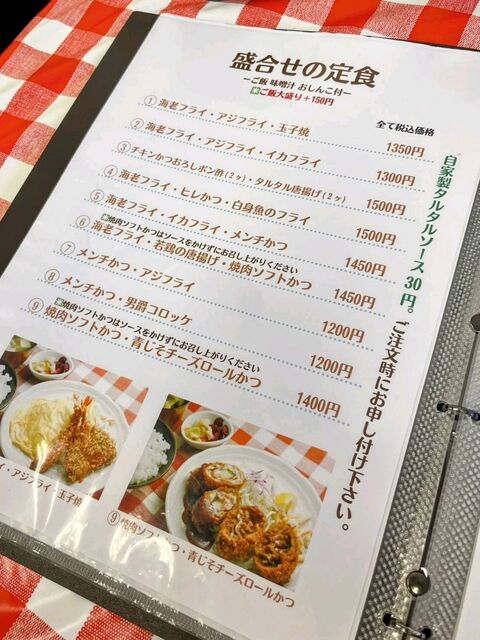 盛合せの定食
ーご飯 味噌汁 おしんこ付ー
※ご飯大盛り+150円
全て税込価格
① 海老フライ・アジフライ・玉子焼 1350円
② 海老フライ・アジフライ・イカフライ 1300円
③ チキンかつおろしポン酢(2ヶ)・タルタル唐揚げ(2ヶ) 1500円
④ 海老フライ・ヒレかつ・白身魚のフライ 1500円
⑤ 海老フライ・イカフライ・メンチかつ 1450円
※焼肉ソフトかつはソースをかけずにお召し上がりください
⑥ 海老フライ・若鶏の唐揚げ・焼肉ソフトかつ 1450円
⑦ メンチかつ・アジフライ 1200円
⑧ メンチかつ・男爵コロッケ 1200円
※焼肉ソフトかつはソースをかけずにお召し上がりください
⑨ 焼肉ソフトかつ・青じそチーズロールかつ 1400円
自家製タルタルソース30円。ご注文時にお申し付け下さい。
イ・アジフライ・玉子焼
⑨ 焼肉ソフトかつ・青じそチーズロールかつ